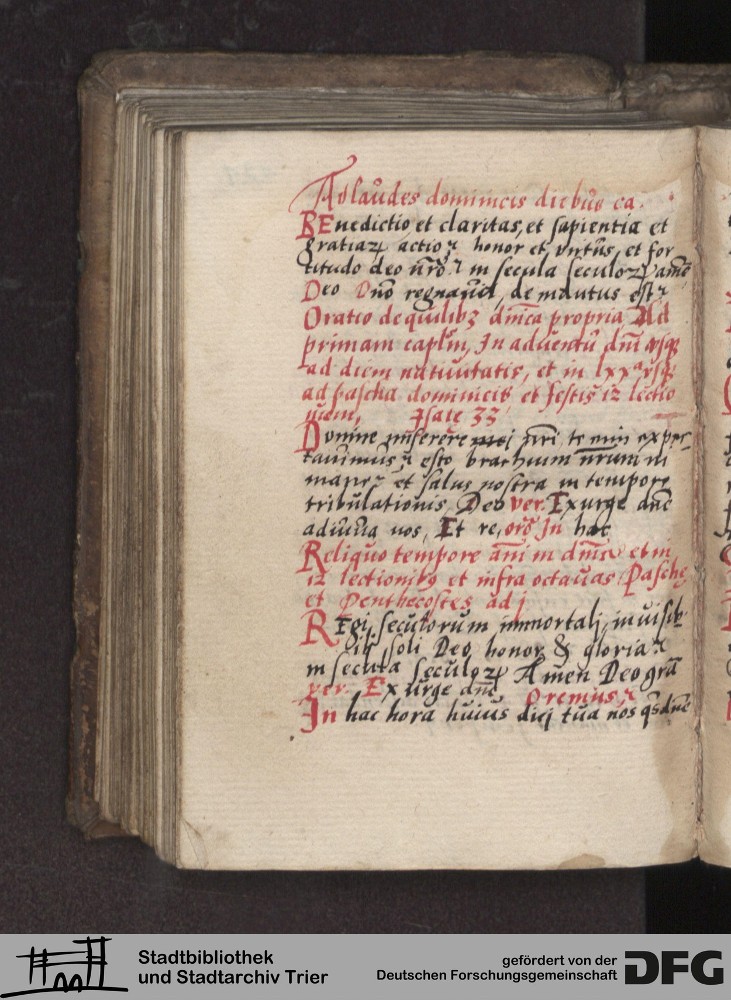 Ad laudes dominicis diebus ca.
BEnedictio et claritas, et sapientia et
gratiaꝝ actio, honor et virtus, et for
titudo deo nrō in secula seculoꝝ amē
Deo Dnō regnavit, decantatus est
Oratio de quilibꝫ dnīca propria Ad
primam caplm, In adventu dnī usqꝫ
ad diem nativitatis, et in lxxa usqꝫ
ad pascha dominicis et festis 12 lectio
num, Isaie 33
Domine miserere mei nri, te enim expec
tavimus, esto brachium nrum in
mane et salus nostra in tempore
tribulationis, Deo ver. Exurge dnē
adiuva nos, Et re, orō In hac
Reliquo tempore anni in dnīcis et in
12 lectionibꝫ et infra octavas Pasche
et Penthecostes ad j
REgi seculorum immortali, invisib
ili, soli Deo honor & gloria
in secula seculoꝝ Amen Deo gra
ver. Exurge dnē Oremus,
In hac hora huius diej tua nos qs dnē
Stadtbibliothek
und Stadtarchiv Trier
gefördert von der
Deutschen Forschungsgemeinschaft
DFG